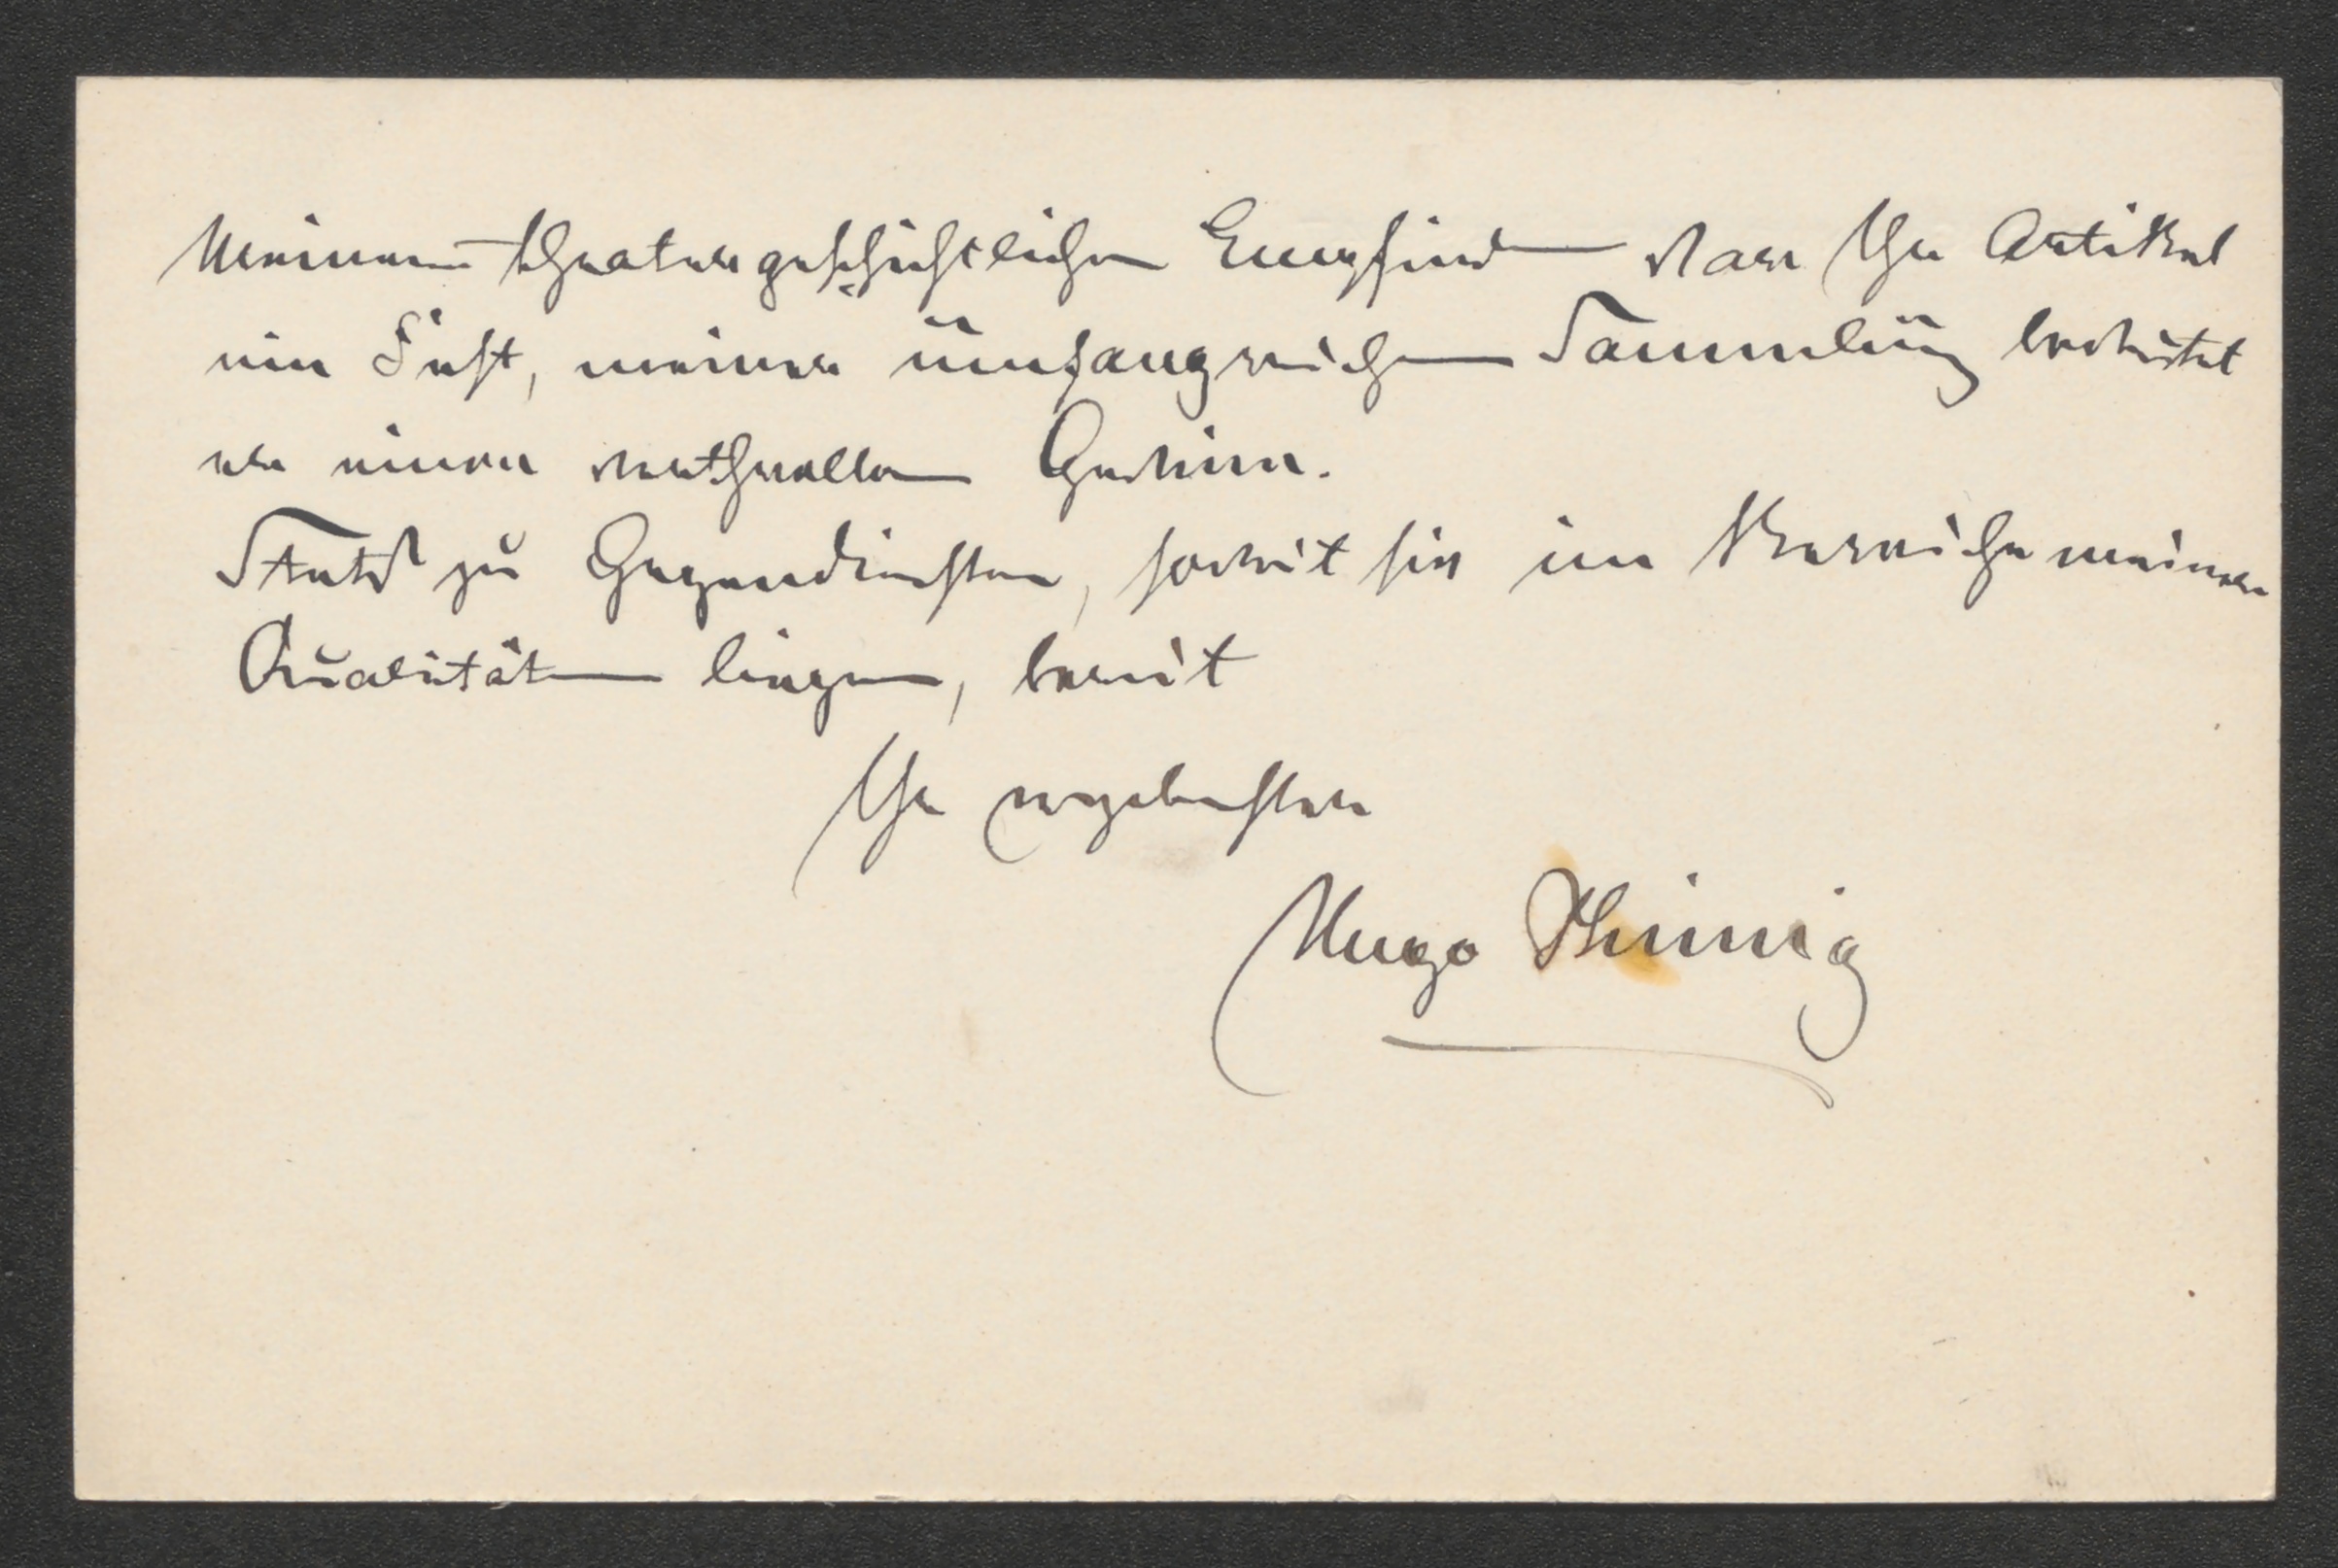 Meinem theatergeschichtlichen Empfinden war Ihr Artikel
ein Fest, meiner umfangreichen Sammlung bedeutet
er einen werthvollen Gewinn.
Stets zu Gegendiensten, soweit sie im Bereiche meiner
Qualitäten liegen, bereit
Ihr ergebenster
Hugo Thimig